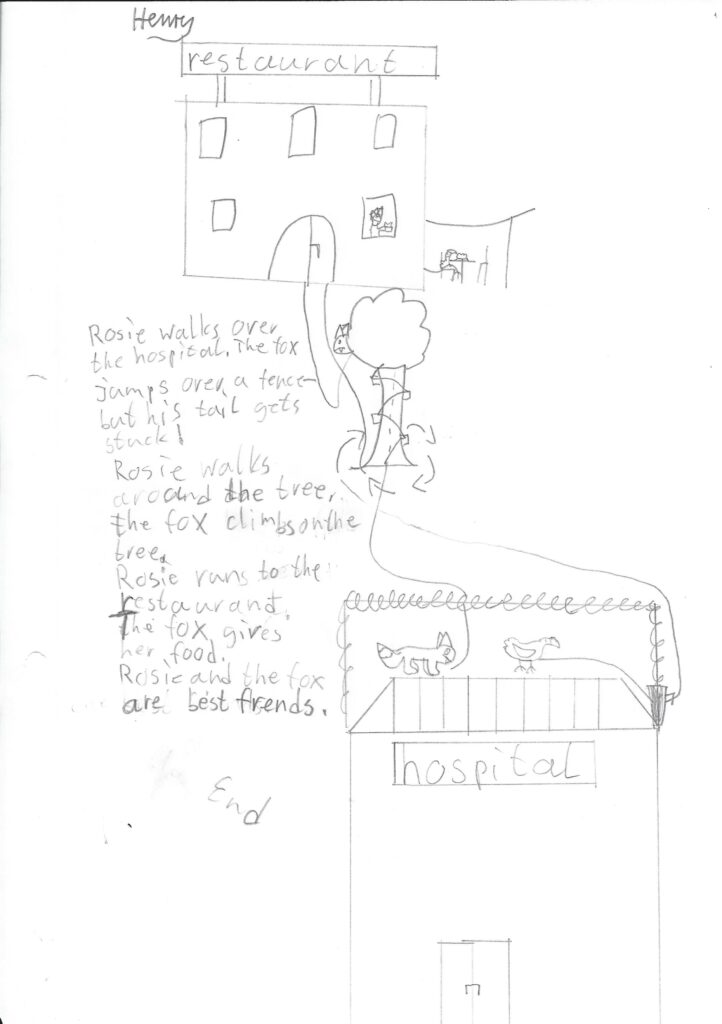 Henry
restaurant
Rosie walks over
the hospital. The fox
jumps over a fence
but his tail gets
stuck!
Rosie walks
around the tree.
the fox climbs on the
tree.
Rosie runs to the
restaurant.
The fox gives
her food.
Rosie and the fox
are best frends.
End
hospital